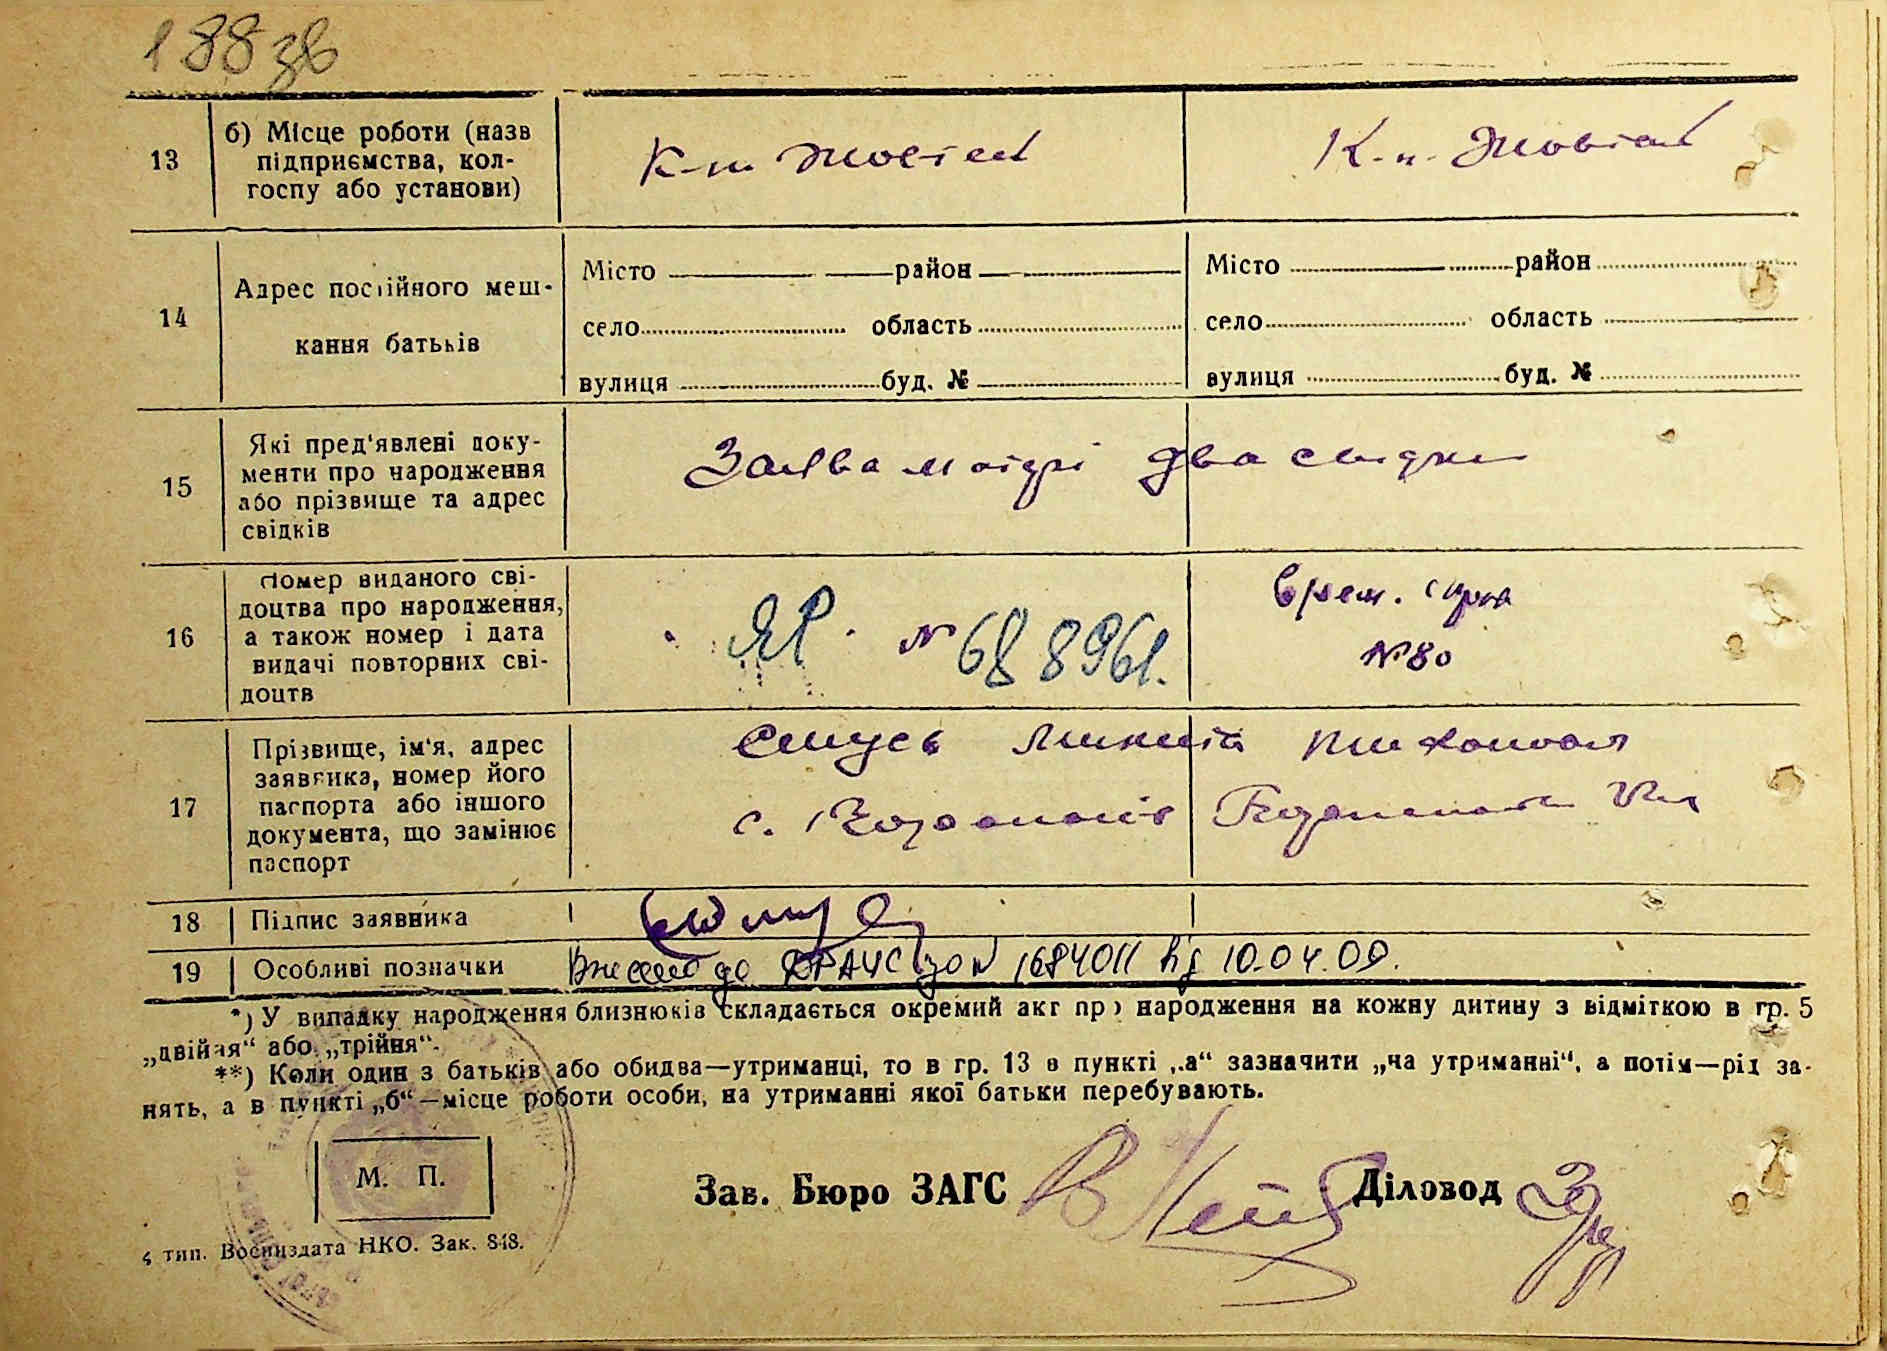 188 зв
13
б) Місце роботи (назв
підприємства, кол-
госпу або установи)
К-п Жовтень
К-п. Жовтень
14
Адрес постійного меш-
кання батьків
Місто район
село область
вулиця буд. №
Місто район
село область
вулиця буд. №
15
Які пред'явлені доку-
менти про народження
або прізвище та адрес
свідків
Заява матері два свідки
16
Номер виданого сві-
доцтва про народження,
а також номер і дата
видачі повторних сві-
доцтв
ЯР № 688961.
Врем. справка
№ 80
17
Прізвище, ім'я, адрес
заявника, номер його
паспорта або іншого
документа, що замінює
паспорт
с.
18
Підпис заявника
19
Особливі позначки
Внесено до ДРАЦС за № 1684011 від 10.04.09.
*) У випадку народження близнюків складається окремий акт про народження на кожну дитину з відміткою в гр. 5
„двійня“ або „трійня“.
**) Коли один з батьків або обидва—утриманці, то в гр. 13 в пункті „а“ зазначити „на утриманні“, а потім—рід за-
нять, а в пункті „б“—місце роботи особи, на утриманні якої батьки перебувають.
М. П.
Зав. Бюро ЗАГС
Діловод
4 тип. Воениздата НКО. Зак. 848.